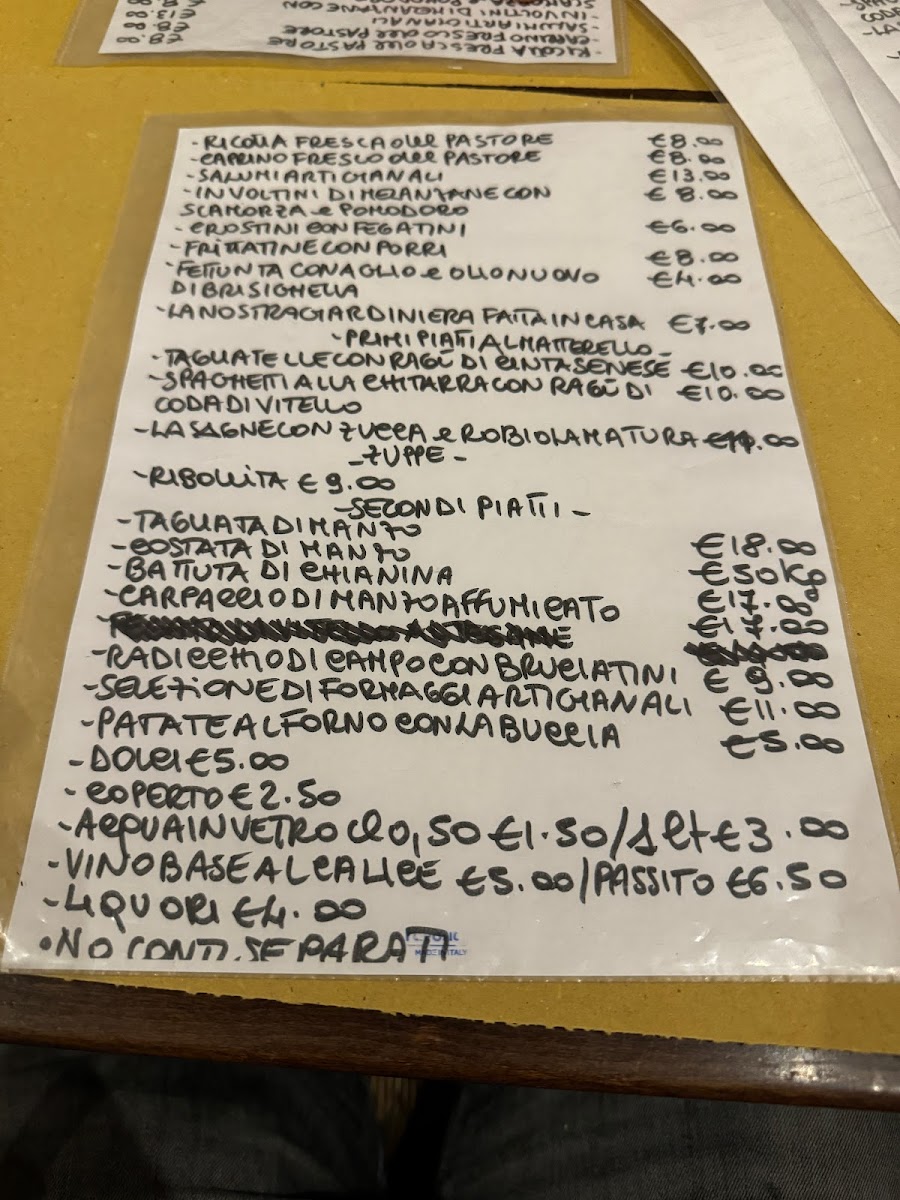 - RICOTTA FRESCA DEL PASTORE €8.00
- CAPRINO FRESCO DEL PASTORE €8.00
- SALUMI ARTIGIANALI €13.00
- INVOLTINI DI MELANZANE CON €8.00
SCAMORZA e POMODORO
- CROSTINI CON FEGATINI €6.00
- FRITTATINE CON PORRI €8.00
- FETTUNTA CON AGLIO e OLIO NUOVO €4.00
DI BRISIGHELLA
- LA NOSTRA GIARDINIERA FATTA IN CASA €7.00
- PRIMI PIATTI AL MATTERELLO -
- TAGLIATELLE CON RAGÙ DI CINTA SENESE €10.00
- SPAGHETTI ALLA CHITARRA CON RAGÙ DI €10.00
CODA DI VITELLO
- LASAGNE CON ZUCCA e ROBIOLA MATURA
- ZUPPE -
- RIBOLLITA €9.00
- SECONDI PIATTI -
- TAGLIATA DI MANZO €18.00
- COSTATA DI MANZO €50 KG
- BATTUTA DI CHIANINA €17.00
- CARPACCIO DI MANZO AFFUMICATO
- RADICCHIO DI CAMPO CON BRUCIATINI €9.00
- SELEZIONE DI FORMAGGI ARTIGIANALI €11.00
- PATATE AL FORNO CON LA BUCCIA €5.00
- DOLCI €5.00
- COPERTO €2.50
- ACQUA IN VETRO Cl 0,50 €1.50/1 lt €3.00
- VINO BASE AL CALICE €5.00/PASSITO €6.50
- LIQUORI €4.00
• NO CONTI SEPARATI
MADE IN ITALY